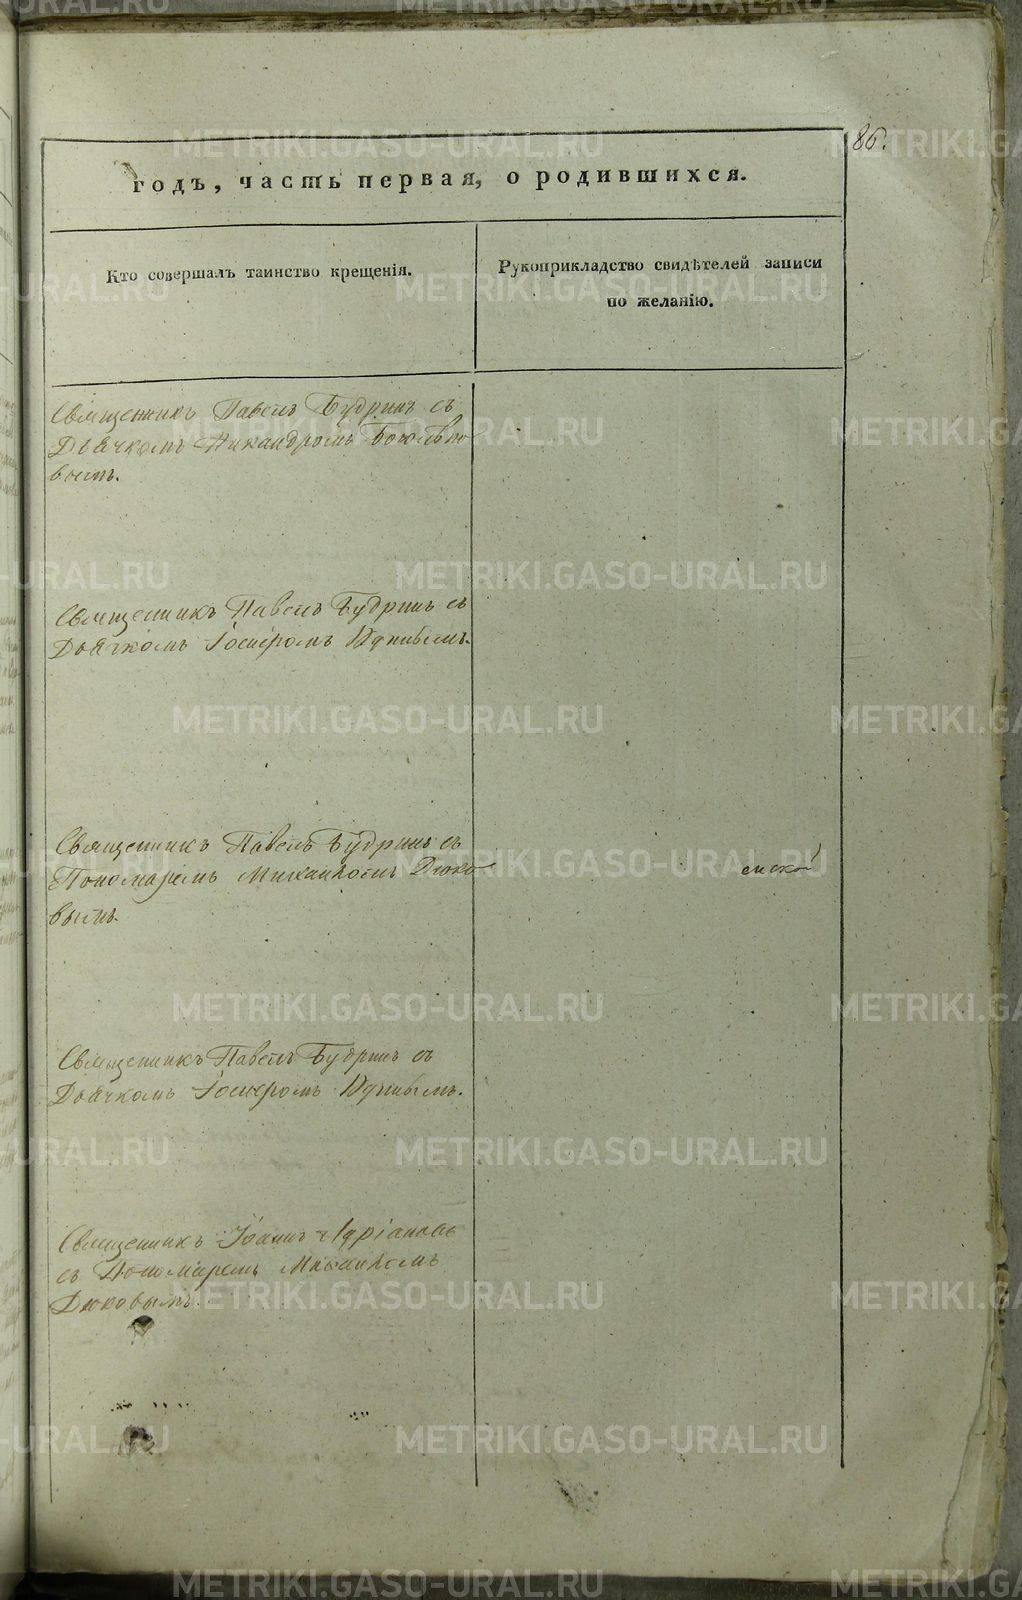 86.
годъ, часть первая, о родившихся.
Кто совершалъ таинство крещенія.
Рукоприкладство свидѣтелей записи
по желанію.
Священникъ Павелъ Будринъ съ
Дьячкомъ Никандромъ Боголѣпо
вымъ.
Священникъ Павелъ Будринъ съ
Дьячкомъ
Священникъ Павелъ Будринъ съ
Пономаремъ Михаиломъ Дюко
вымъ.
Священникъ Павелъ Будринъ съ
Дьячкомъ
Священникъ Іоаннъ Адріановъ
съ Пономаремъ Михаиломъ
Дюковымъ.
METRIKI.GASO-URAL.RU